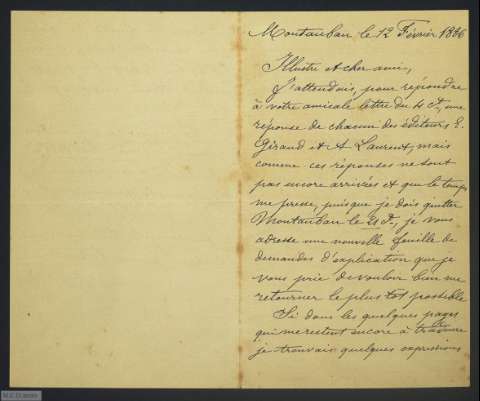 Montauban le 12 Février 1886
Illustre et cher ami,
J'attendais, pour répondre
à votre amicale lettre du 4 ct, une
réponse de chacun des éditeurs E.
Giraud et A Laurent, mais
comme ces réponses ne sont
pas encore arrivées et que le temps
me presse, puisque je dois quitter
Montauban le 21 ct, je vous
adresse une nouvelle feuille de
demandes d'explication que je
vous prie de vouloir bien me
retourner le plus tot possible
Si dans les quelques pages
qui me restent encore à traduire
je trouvais quelques expressions